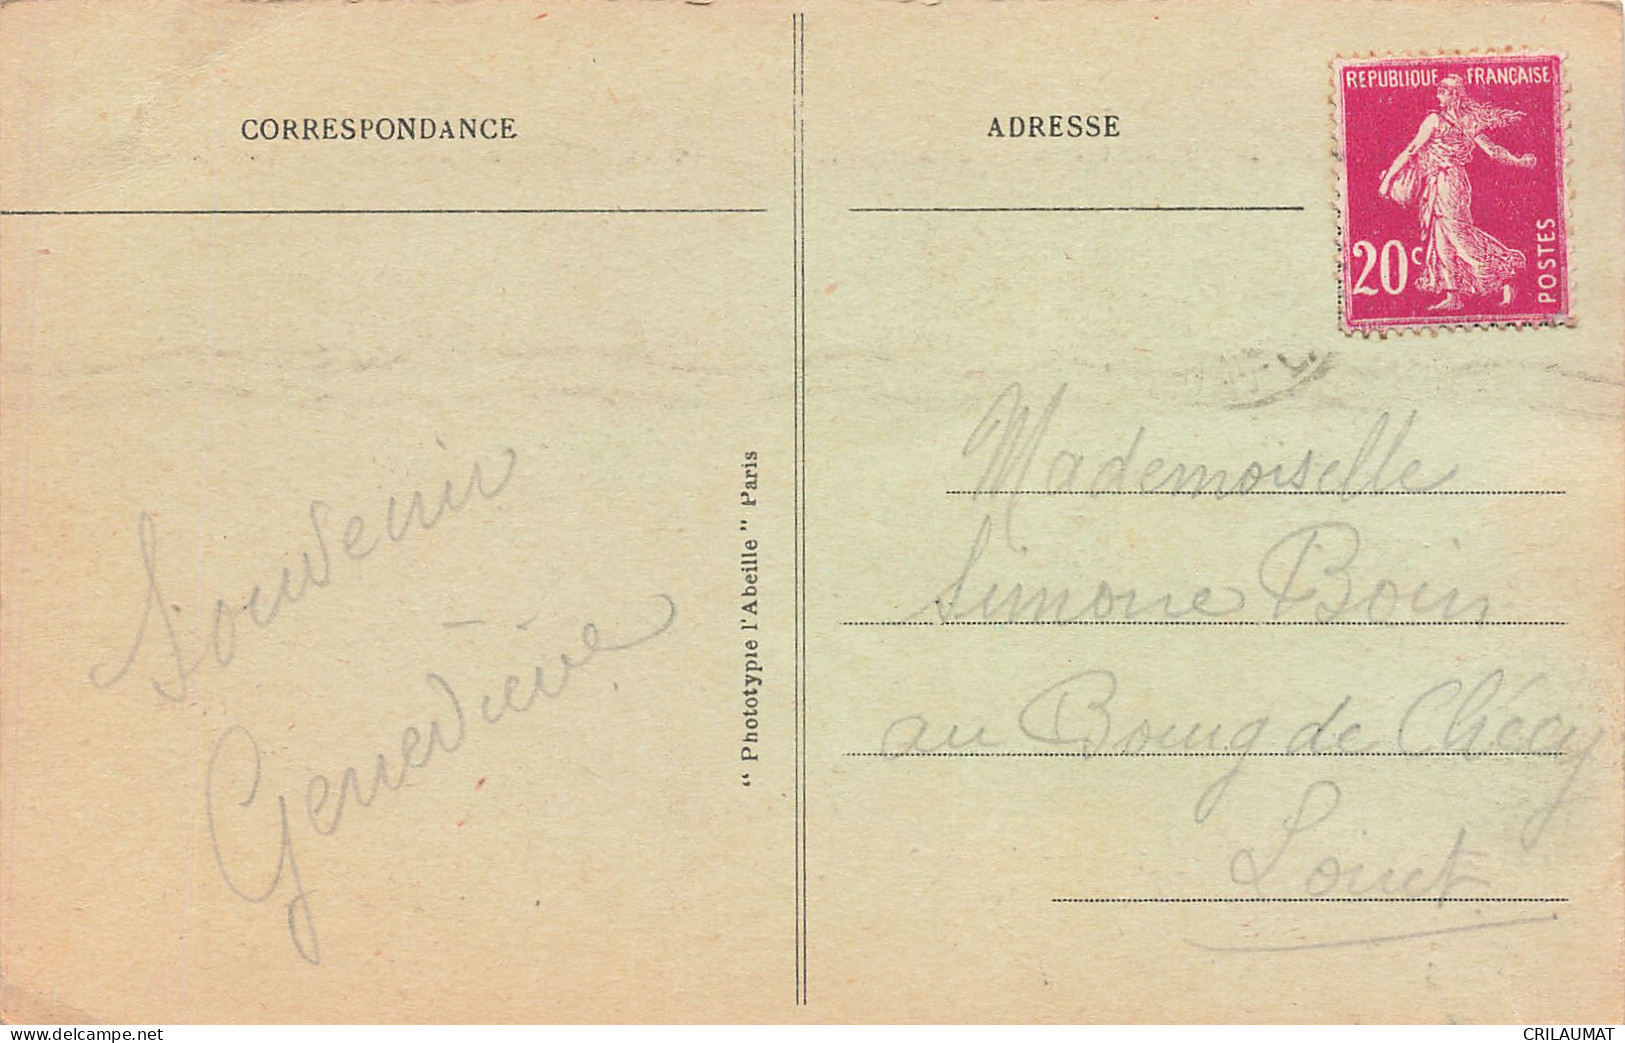 CORRESPONDANCE
ADRESSE
REPUBLIQUE FRANÇAISE
20c
POSTES
Souvenir
Geneviève
" Phototypie l'Abeille " Paris
Mademoiselle
Simone Boin
au Bourg de Chécy
Loiret
www.delcampe.net
CRILAUMAT